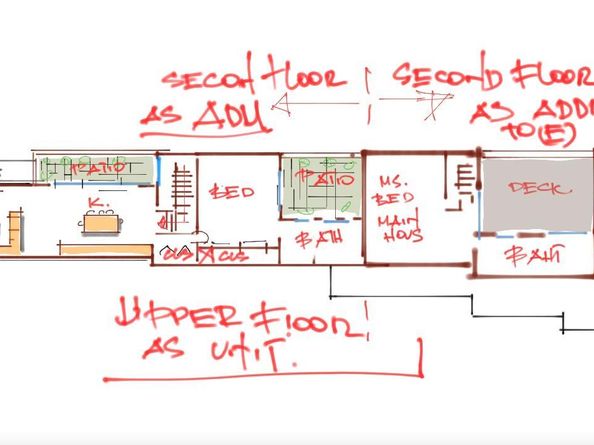 SECON FLOOR
AS ADU
SECOND FLOOR
AS ADD
TO(E)
PATIO
K.
BED
PATIO
BATH
MS.
BED
MAIN
HOUS
DECK
BAHT
UPPER FLOOR
AS UNIT.